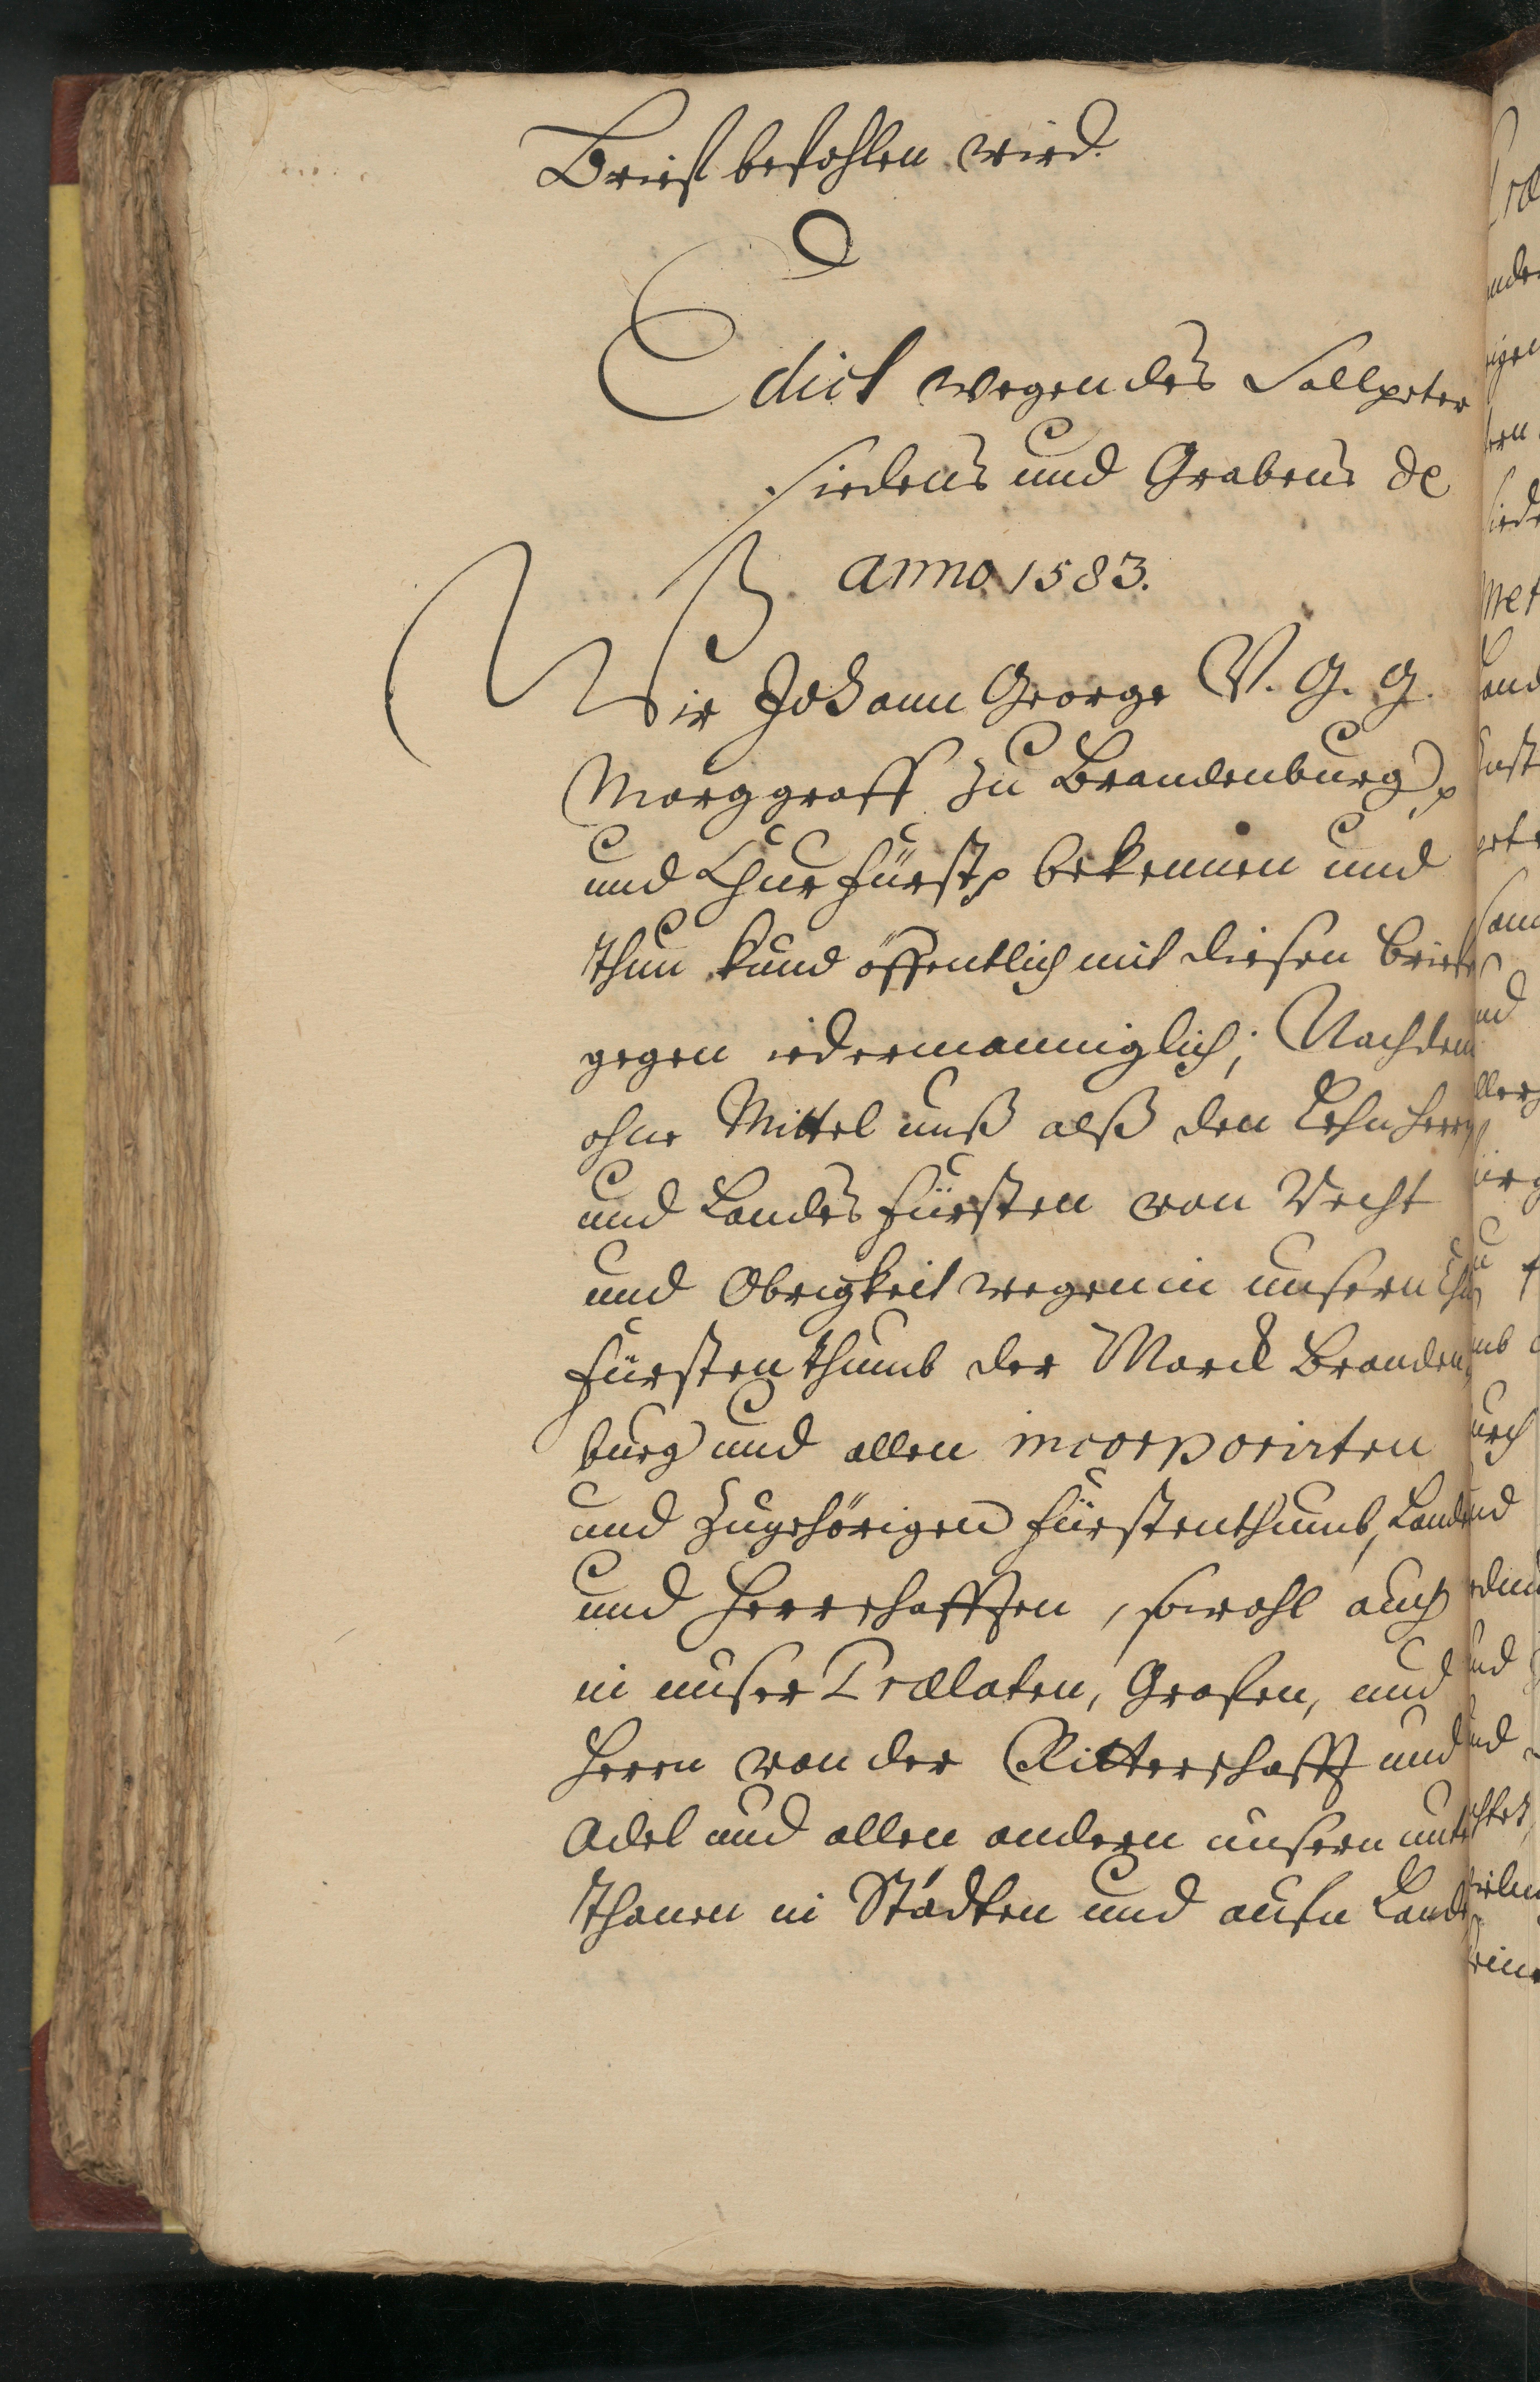 Brieff befohlen wird.
Edict wegen des Sallpeter
siedens und Grabens de
anno 1583.
Wir Johann George V. G. G.
Marggraff zu Brandenburg
und Churfürst bekennen und
thun kund öffentlich mit diesen briefe
gegen iedermanniglich; Nachdem
ohne Mittel unß alß den Lehnherrn
und Landes fürsten von Recht
und Obrigkeit wegen in unsern Chur
fürstenthumb der Marck Branden
burg und allen incorporirten
und zugehörigen fürstenthumb, Landen
und Herrschafften, sowohl auch
in unser Prælaten, Grafen, und
Herrn von der Ritterschafft und
Adel und allen andern unsern unter
thanen in Städten und aufn Lande